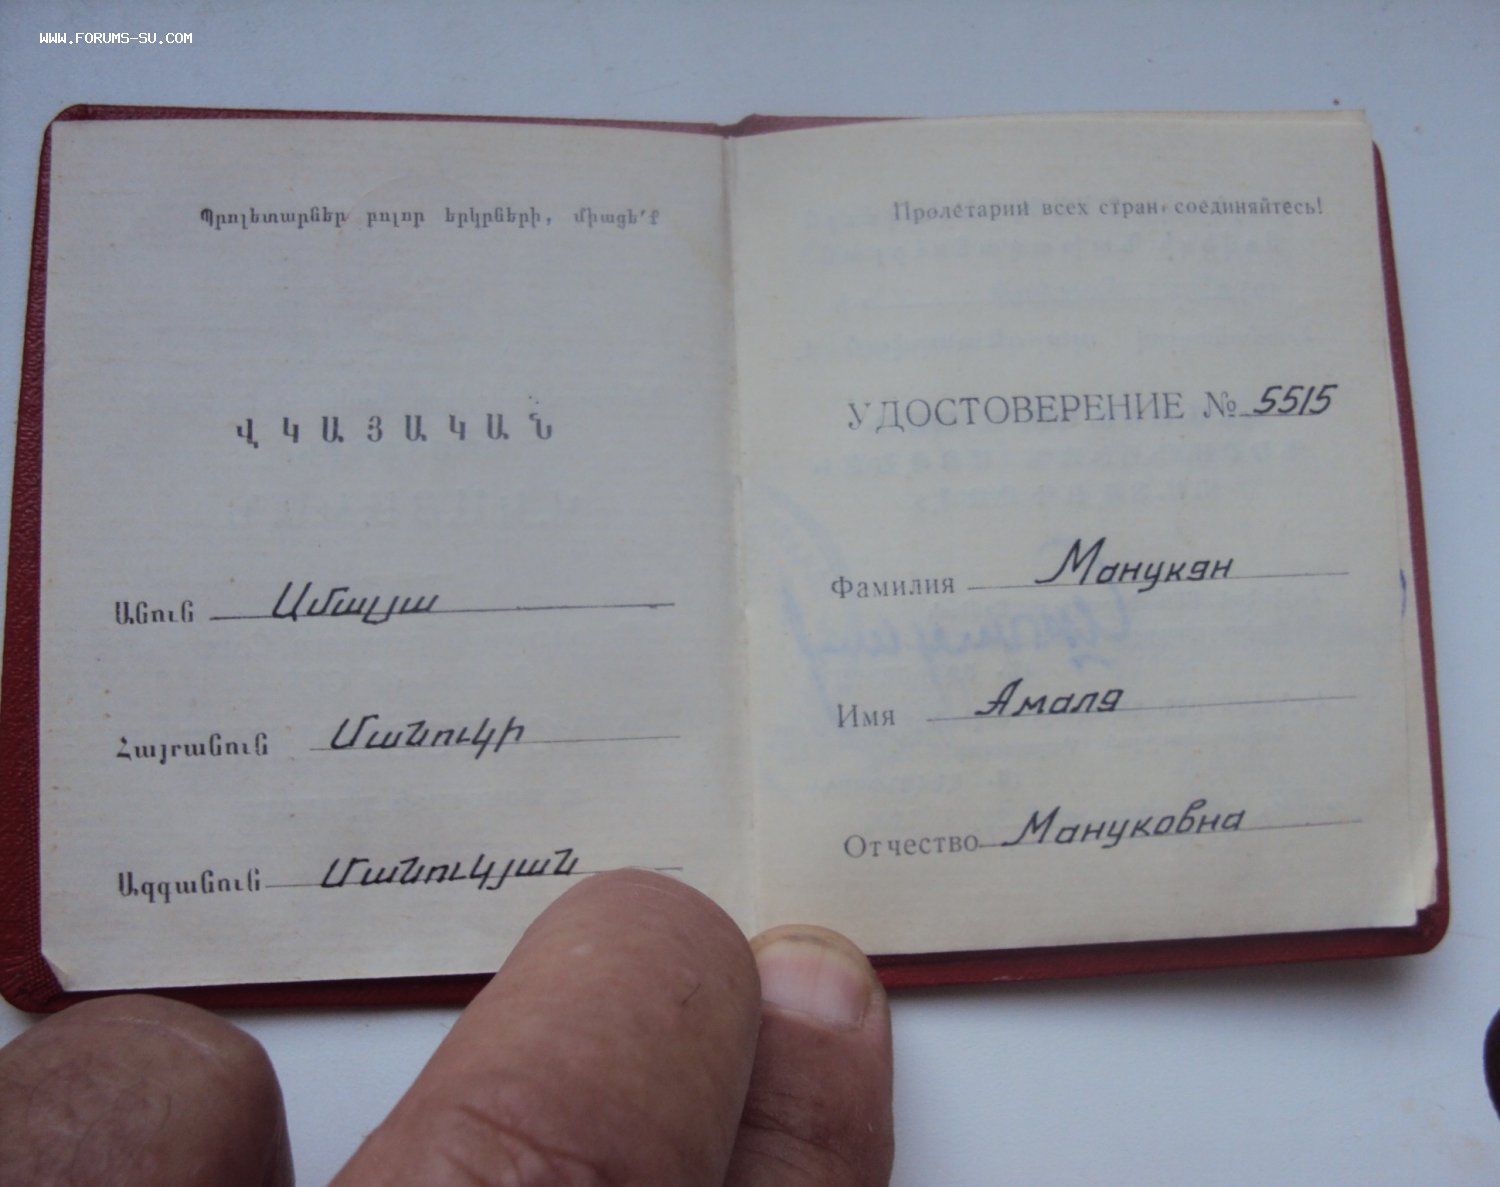 WWW.FORUMS-SU.COM
Պրոլետարներ բոլոր երկրների, միացե՛ք
ՎԿԱՅԱԿԱՆ
Անուն Ամալյա
Հայրանուն Մանուկի
Ազգանուն Մանուկյան
Пролетарии всех стран, соединяйтесь!
УДОСТОВЕРЕНИЕ № 5515
Фамилия Манукян
Имя Амаля
Отчество Мануковна